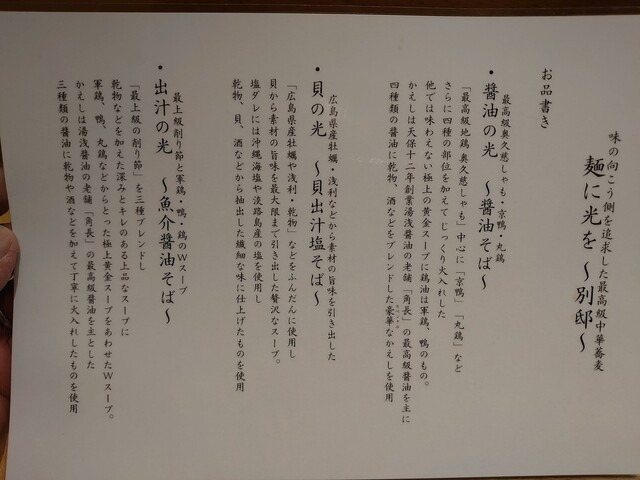 味の向こう側を追求した最高級中華蕎麦
麺に光を 〜別邸〜
お品書き
最高級奥久慈しゃも・京鴨・丸鶏
・醤油の光 〜醤油そば〜
「最高級地鶏 奥久慈しゃも」中心に「京鴨」「丸鶏」など
さらに四種の部位を加えてじっくり火入れした
他では味わえない極上の黄金スープに鶏油は軍鶏、鴨のもの。
かえしは天保十二年創業湯浅醤油の老舗「角長」の最高級醤油を主に
四種類の醤油に乾物、酒などをブレンドした豪華なかえしを使用
広島県産牡蠣・浅利などから素材の旨味を引き出した
・貝の光 〜貝出汁塩そば〜
「広島県産牡蠣や浅利・乾物」などをふんだんに使用し
貝から素材の旨味を最大限まで引き出した贅沢なスープ。
塩ダレには沖縄海塩や淡路島産の塩を使用し
乾物、貝、酒などから抽出した繊細な味に仕上げたものを使用
最上級削り節と軍鶏・鴨・鶏のWスープ
・出汁の光 〜魚介醤油そば〜
「最上級の削り節」を三種ブレンドし
乾物などを加えた深みとキレのある上品なスープに
軍鶏、鴨、丸鶏などからとった極上黄金スープをあわせたWスープ。
かえしは湯浅醤油の老舗「角長」の最高級醤油を主とした
三種類の醤油に乾物や酒などを加えて丁寧に火入れしたものを使用